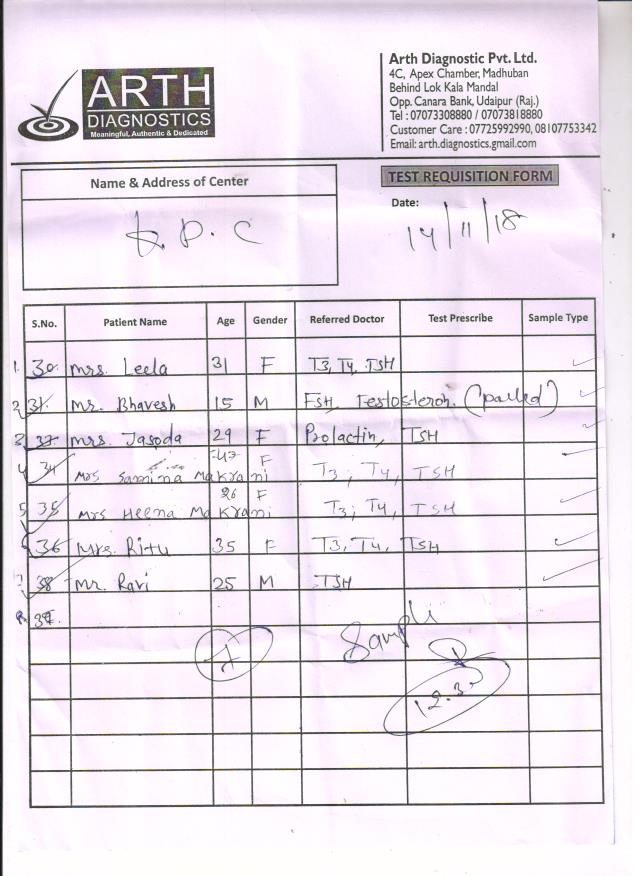 ARTH
DIAGNOSTICS
Meaningful, Authentic & Dedicated
Arth Diagnostic Pvt. Ltd.
4C, Apex Chamber, Madhuban
Behind Lok Kala Mandal
Opp. Canara Bank, Udaipur (Raj.)
Tel : 07073308880 / 07073818880
Customer Care : 07725992990, 08107753342
Email: arth.diagnostics.gmail.com
Name & Address of Center
TEST REQUISITION FORM
Date:
14/11/18
S.No. Patient Name Age Gender Referred Doctor Test Prescribe Sample Type
1. 30. Mrs. Leela 31 F T3, T4, TSH
2. 31. Mr. Bhavesh 15 M FSH, Testosteron. (pooled)
3. Mrs. Jasoda 29 F Prolactin, TSH
4 34 Mrs Samina Makrani 47 F T3, T4, TSH
5 35 Mrs Heena Makrani 26 F T3, T4, TSH
36 Mrs. Ritu 35 F T3, T4, TSH
38 Mr. Ravi 25 M TSH
Sample